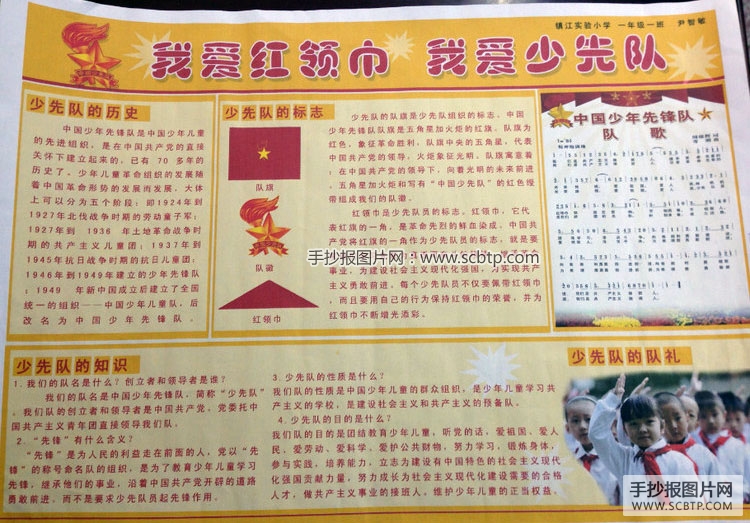 镇江实验小学 一年级一班 尹智敏
我爱红领巾 我爱少先队
少先队的历史
中国少年先锋队是中国少年儿童
的先进组织，是在中国共产党的直接
关怀下建立起来的，已有 70 多年的
历史了。少年儿童革命组织的发展随
着中国革命形势的发展而发展，大体
上可以分为五个阶段：即1924年到
1927年北伐战争时期的劳动童子军；
1927年到 1936 年土地革命战争时
期的共产主义儿童团；1937年到
1945年抗日战争时期的抗日儿童团；
1946年到1949年建立的少年先锋队
；1949 年新中国成立后建立了全国
统一的组织──中国少年儿童队，后
改名为中国少年先锋队。
少先队的标志
队旗
队徽
红领巾
少先队的队旗是少先队组织的标志。中国
少年先锋队队旗是五角星加火炬的红旗。队旗为
红色，象征革命胜利。队旗中央的五角星，代表
中国共产党的领导，火炬象征光明。队旗寓意着
：在中国共产党的领导下，向着光明的未来前进
。五角星加火炬和写有“中国少先队”的红色绶
带组成我们的队徽。
红领巾是少先队员的标志。红领巾，它代
表红旗的一角，是革命先烈的鲜血染成。中国共
产党将红旗的一角作为少先队员的标志，就是要
事业，为建设社会主义现代化强国，为实现共产
主义勇敢前进。每个少先队员不仅要佩带红领巾
，而且要用自己的行为保持红领巾的荣誉，并为
红领巾不断增光添彩。
手抄报图片网：www.scbtp.com
中国少年先锋队
队 歌
少先队的知识
1.我们的队名是什么？创立者和领导者是谁？
我们的队名是中国少年先锋队，简称“少先队”
。我们队的创立者和领导者是中国共产党。党委托中
国共产主义青年团直接领导我们队。
2.“先锋”有什么含义？
“先锋”是为人民的利益走在前面的人，党以“先
锋”的称号命名队的组织，是为了教育少年儿童学习
先锋，继承他们的事业，沿着中国共产党开辟的道路
勇敢前进。而不是要求少先队员起先锋作用。
3.少先队的性质是什么？
我们队的性质是中国少年儿童的群众组织，是少年儿童学习共
产主义的学校，是建设社会主义和共产主义的预备队。
4.少先队的目的是什么？
我们队的目的是团结教育少年儿童，听党的话，爱祖国、爱人
民、爱劳动、爱科学、爱护公共财物，努力学习，锻炼身体，
参与实践，培养能力，立志为建设有中国特色的社会主义现代
化强国贡献力量，努力成长为社会主义现代化建设需要的合格
人才，做共产主义事业的接班人。维护少年儿童的正当权益。
少先队的队礼
手抄报图片网
WWW.SCBTP.COM